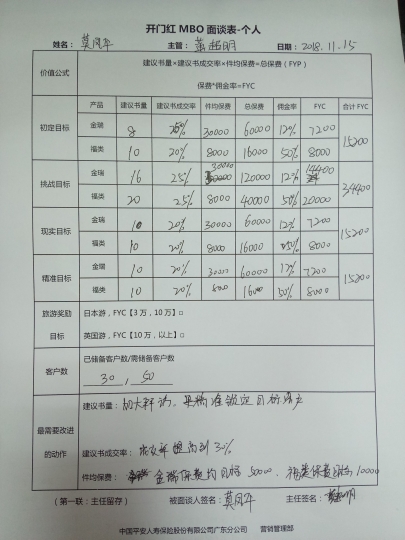 开门红 MBO 面谈表-个人
姓名: 莫凤华 主管: 萧超明 日期: 2018.11.15
价值公式 建议书量×建议书成交率×件均保费=总保费(FYP)
保费*佣金率=FYC
产品 建议书量 建议书成交率 件均保费 总保费 佣金率 FYC 合计 FYC
初定目标 金瑞 8 30000 60000 12% 7200 15200
福类 10 20% 8000 16000 50% 8000
挑战目标 金瑞 16 25% 30000 120000 12% 14400 34400
福类 20 25% 8000 40000 50% 20000
现实目标 金瑞 10 20% 30000 60000 12% 7200 15200
福类 10 20% 8000 16000 50% 8000
精准目标 金瑞 10 20% 30000 60000 12% 7200 15200
福类 10 20% 8000 16000 50% 8000
旅游奖励 日本游,FYC【3万,10万】□
目标 英国游,FYC【10万,以上】□
客户数 已储备客户数/需储备客户数
30 , 50
最需要改进的动作 建议书量: 加大拜访, 精准锁定目标客户
建议书成交率: 成交率提高到30%
件均保费: 金瑞保费均目标 50000, 福类保费 10000
(第一联:主任留存) 被面谈人签名: 莫凤华 主任签名:
中国平安人寿保险股份有限公司广东分公司 营销管理部